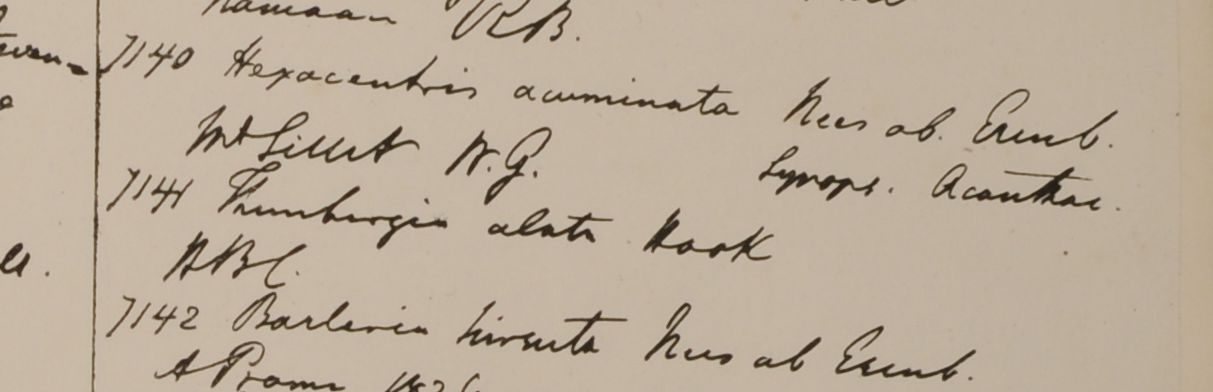 Namaan RB.
7140 Hexacentris acuminata Nees ab. Esenb.
Mt Sillet W. G. Synops. Acanthac.
7141 Thunbergia alata Hook
HBC.
7142 Barleria hirsuta Nees ab Esenb.
A Prome